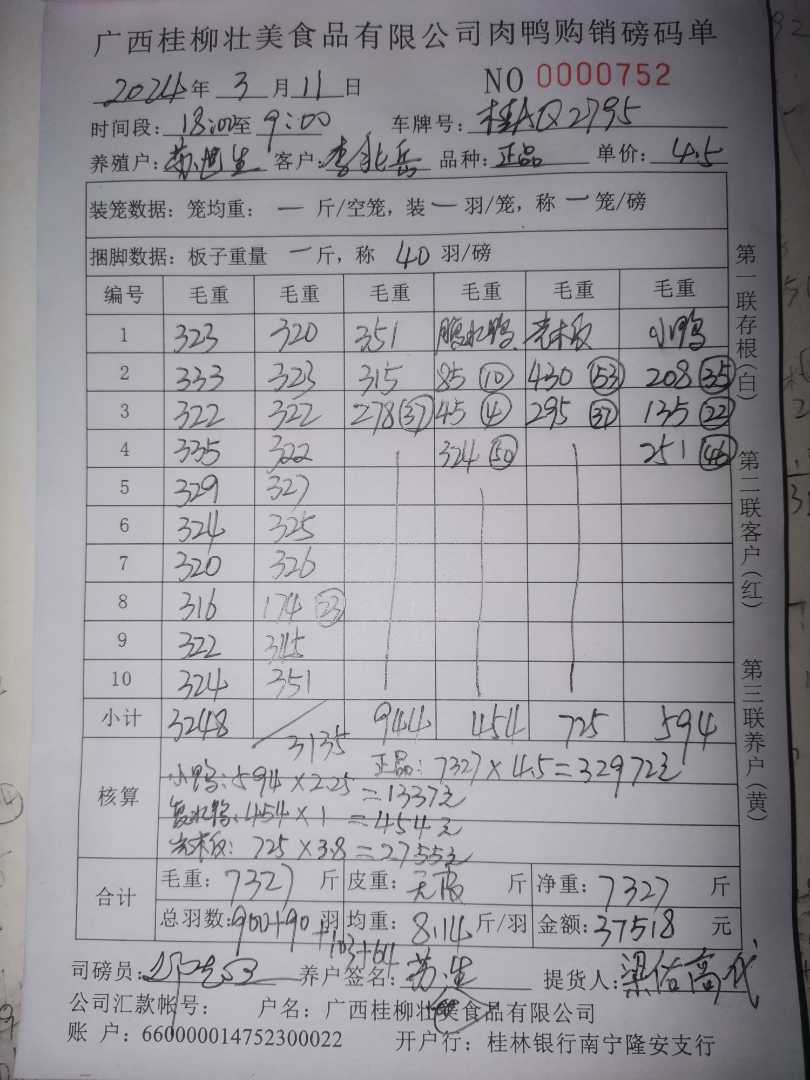 广西桂柳壮美食品有限公司肉鸭购销磅码单
2024年 3 月 11 日 NO 0000752
时间段: 18:00至 9:00 车牌号: 桂AQ2795
养殖户: 苏 生 客户: 李北岳 品种: 正品 单价: 4.5
装笼数据: 笼均重: 一 斤/空笼, 装 一 羽/笼, 称 一 笼/磅
捆脚数据: 板子重量 一 斤, 称 40 羽/磅
编号 毛重 毛重 毛重 毛重 毛重 毛重
1 323 320 351 腹水鸭 光木板 小鸭
2 333 323 315 85 (10) 430 (53) 208 (35)
3 322 322 278 (37) 45 (4) 295 (37) 135 (22)
4 335 322 324 (50) 251 (46)
5 329 327
6 324 325
7 320 326
8 316 174 (23)
9 322 345
10 324 351
小计 3248 3135 944 454 725 594
核算
正品: 7327×4.5=32972元
小鸭: 594×2.25=1337元
腹水鸭: 454×1=454元
光木板: 725×3.8=2755元
合计
毛重: 7327 斤 皮重: 无板 斤 净重: 7327 斤
总羽数: 900+90+103+64 羽 均重: 8.14 斤/羽 金额: 37518 元
司磅员: 养户签名: 苏 生 提货人: 梁佑高代
公司汇款帐号: 户名: 广西桂柳壮美食品有限公司
账 户: 660000014752300022 开户行: 桂林银行南宁隆安支行
第一联存根(白)
第二联客户(红)
第三联养户(黄)